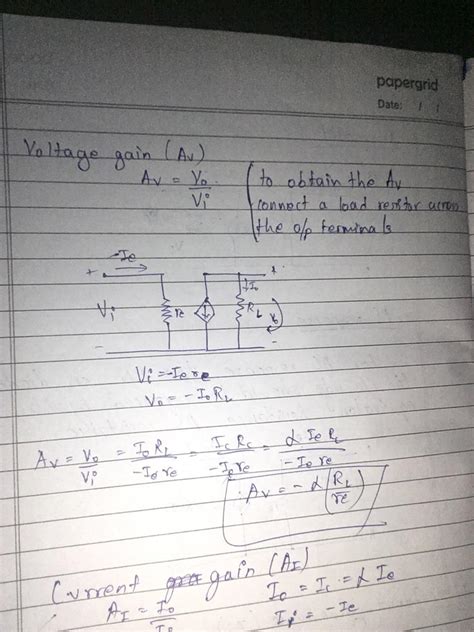 papergrid
Date: / /
Voltage gain (Av)
Av = Vo/Vi
to obtain the Av
connect a load resistor across
the o/p terminals
-Ie
+ +
Vi re Io RL Vo
- -
Vi = -Ie re
Vo = -Io RL
Av = Vo/Vi = Io RL/-Ie re = Ic RL/-Ie re = α Ie RL/-Ie re
∴ Av = -α (RL/re)
Current gain (AI)
Io = Ic = α Ie
AI = Io/
Ii = -Ie